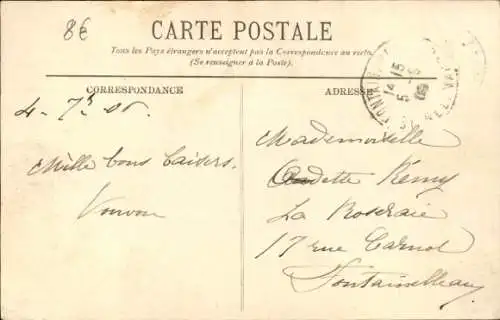 8€
CARTE POSTALE
Tous les Pays étrangers n'acceptent pas la Correspondance au recto
(Se renseigner à la Poste).
CORRESPONDANCE
4- 7bre 06.
Mille bons baisers.
ADRESSE
14-15
5-9
06
Mademoiselle
Odette Rémy
La Roseraie
17 rue Carnot
Fontainebleau